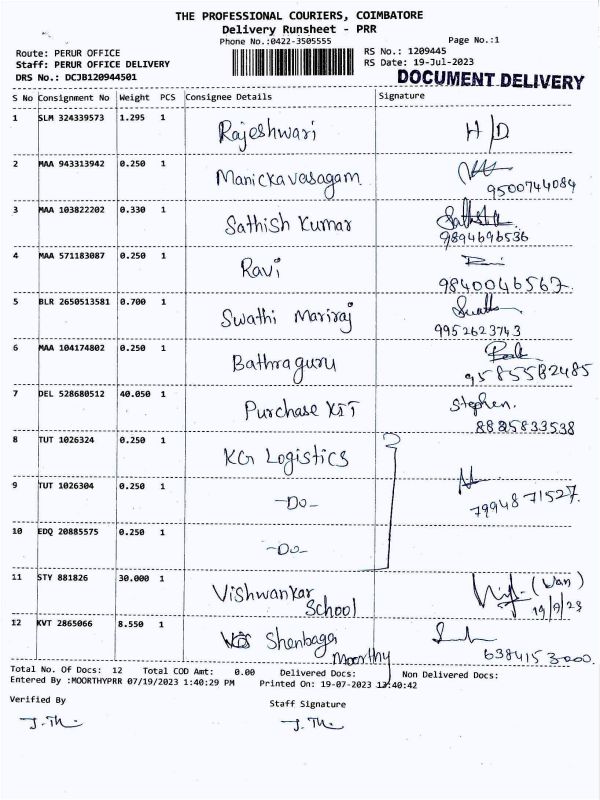 THE PROFESSIONAL COURIERS, COIMBATORE
Delivery Runsheet - PRR
Phone No.:0422-3505555 Page No.:1
Route: PERUR OFFICE RS No.: 1209445
Staff: PERUR OFFICE DELIVERY RS Date: 19-Jul-2023
DRS No.: DCJB120944501 DOCUMENT DELIVERY
S No Consignment No Weight PCS Consignee Details Signature
1 SLM 324339573 1.295 1 Rajeshwari H/D
2 MAA 943313942 0.250 1 Manickavasagam
9500744084
3 MAA 103822202 0.330 1 Sathish Kumar Sathish
9894696536
4 MAA 571183087 0.250 1 Ravi
9840046567.
5 BLR 2650513581 0.700 1 Swathi Mariraj
9952623743
6 MAA 104174802 0.250 1 Bathraguru
7 DEL 528680512 40.050 1 Purchase Stephen.
8825833538
8 TUT 1026324 0.250 1 KG Logistics
9 TUT 1026304 0.250 1 -Do-
7994871527.
10 EDQ 20885575 0.250 1 -Do-
11 STY 881826 30.000 1 Vishwankar (Van)
School
12 KVT 2865066 8.550 1 Shenbaga
Moorthy 638415 3000.
Total No. OF Docs: 12 Total COD Amt: 0.00 Delivered Docs: Non Delivered Docs:
Entered By :MOORTHYPRR 07/19/2023 1:40:29 PM Printed On: 19-07-2023 13:40:42
Verified By Staff Signature